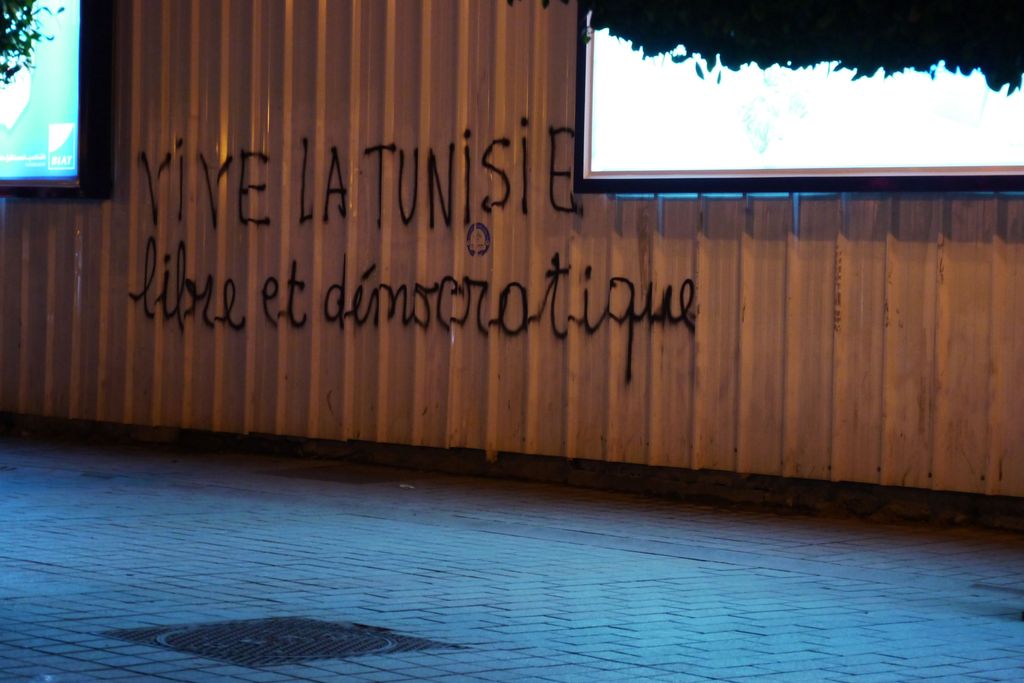 BIAT
VIVE LA TUNISIE
libre et démocratique